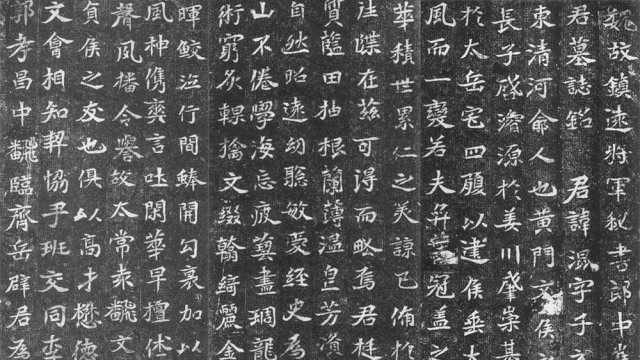 魏故鎮遠將軍秘書郎中
君墓誌銘 君諱混字子元
東清河俞人也黃門文侯
長子啓濬源於姜川肇崇基
於太岳宅四履以建侯垂大
風而一變若夫弈世冠蓋之
華積世累仁之美諒已備於
牒在茲可得而略焉君挺
質藍田抽根蘭薄溫芳
自然昭遠幼聡敏愛經史為
山不倦學海忘疲藝盡琱龍
術窮炙輠摛文綴翰綺麗金
暉鮫泣行間鱗開勾裏加以
風神儁爽言吐閑華早擅佳
聲風播令譽故太常袁飜文
貞侯之友也俱以高才懋德
文會相知契協尹班交同李
郭孝昌中飜臨齊岳辟君為